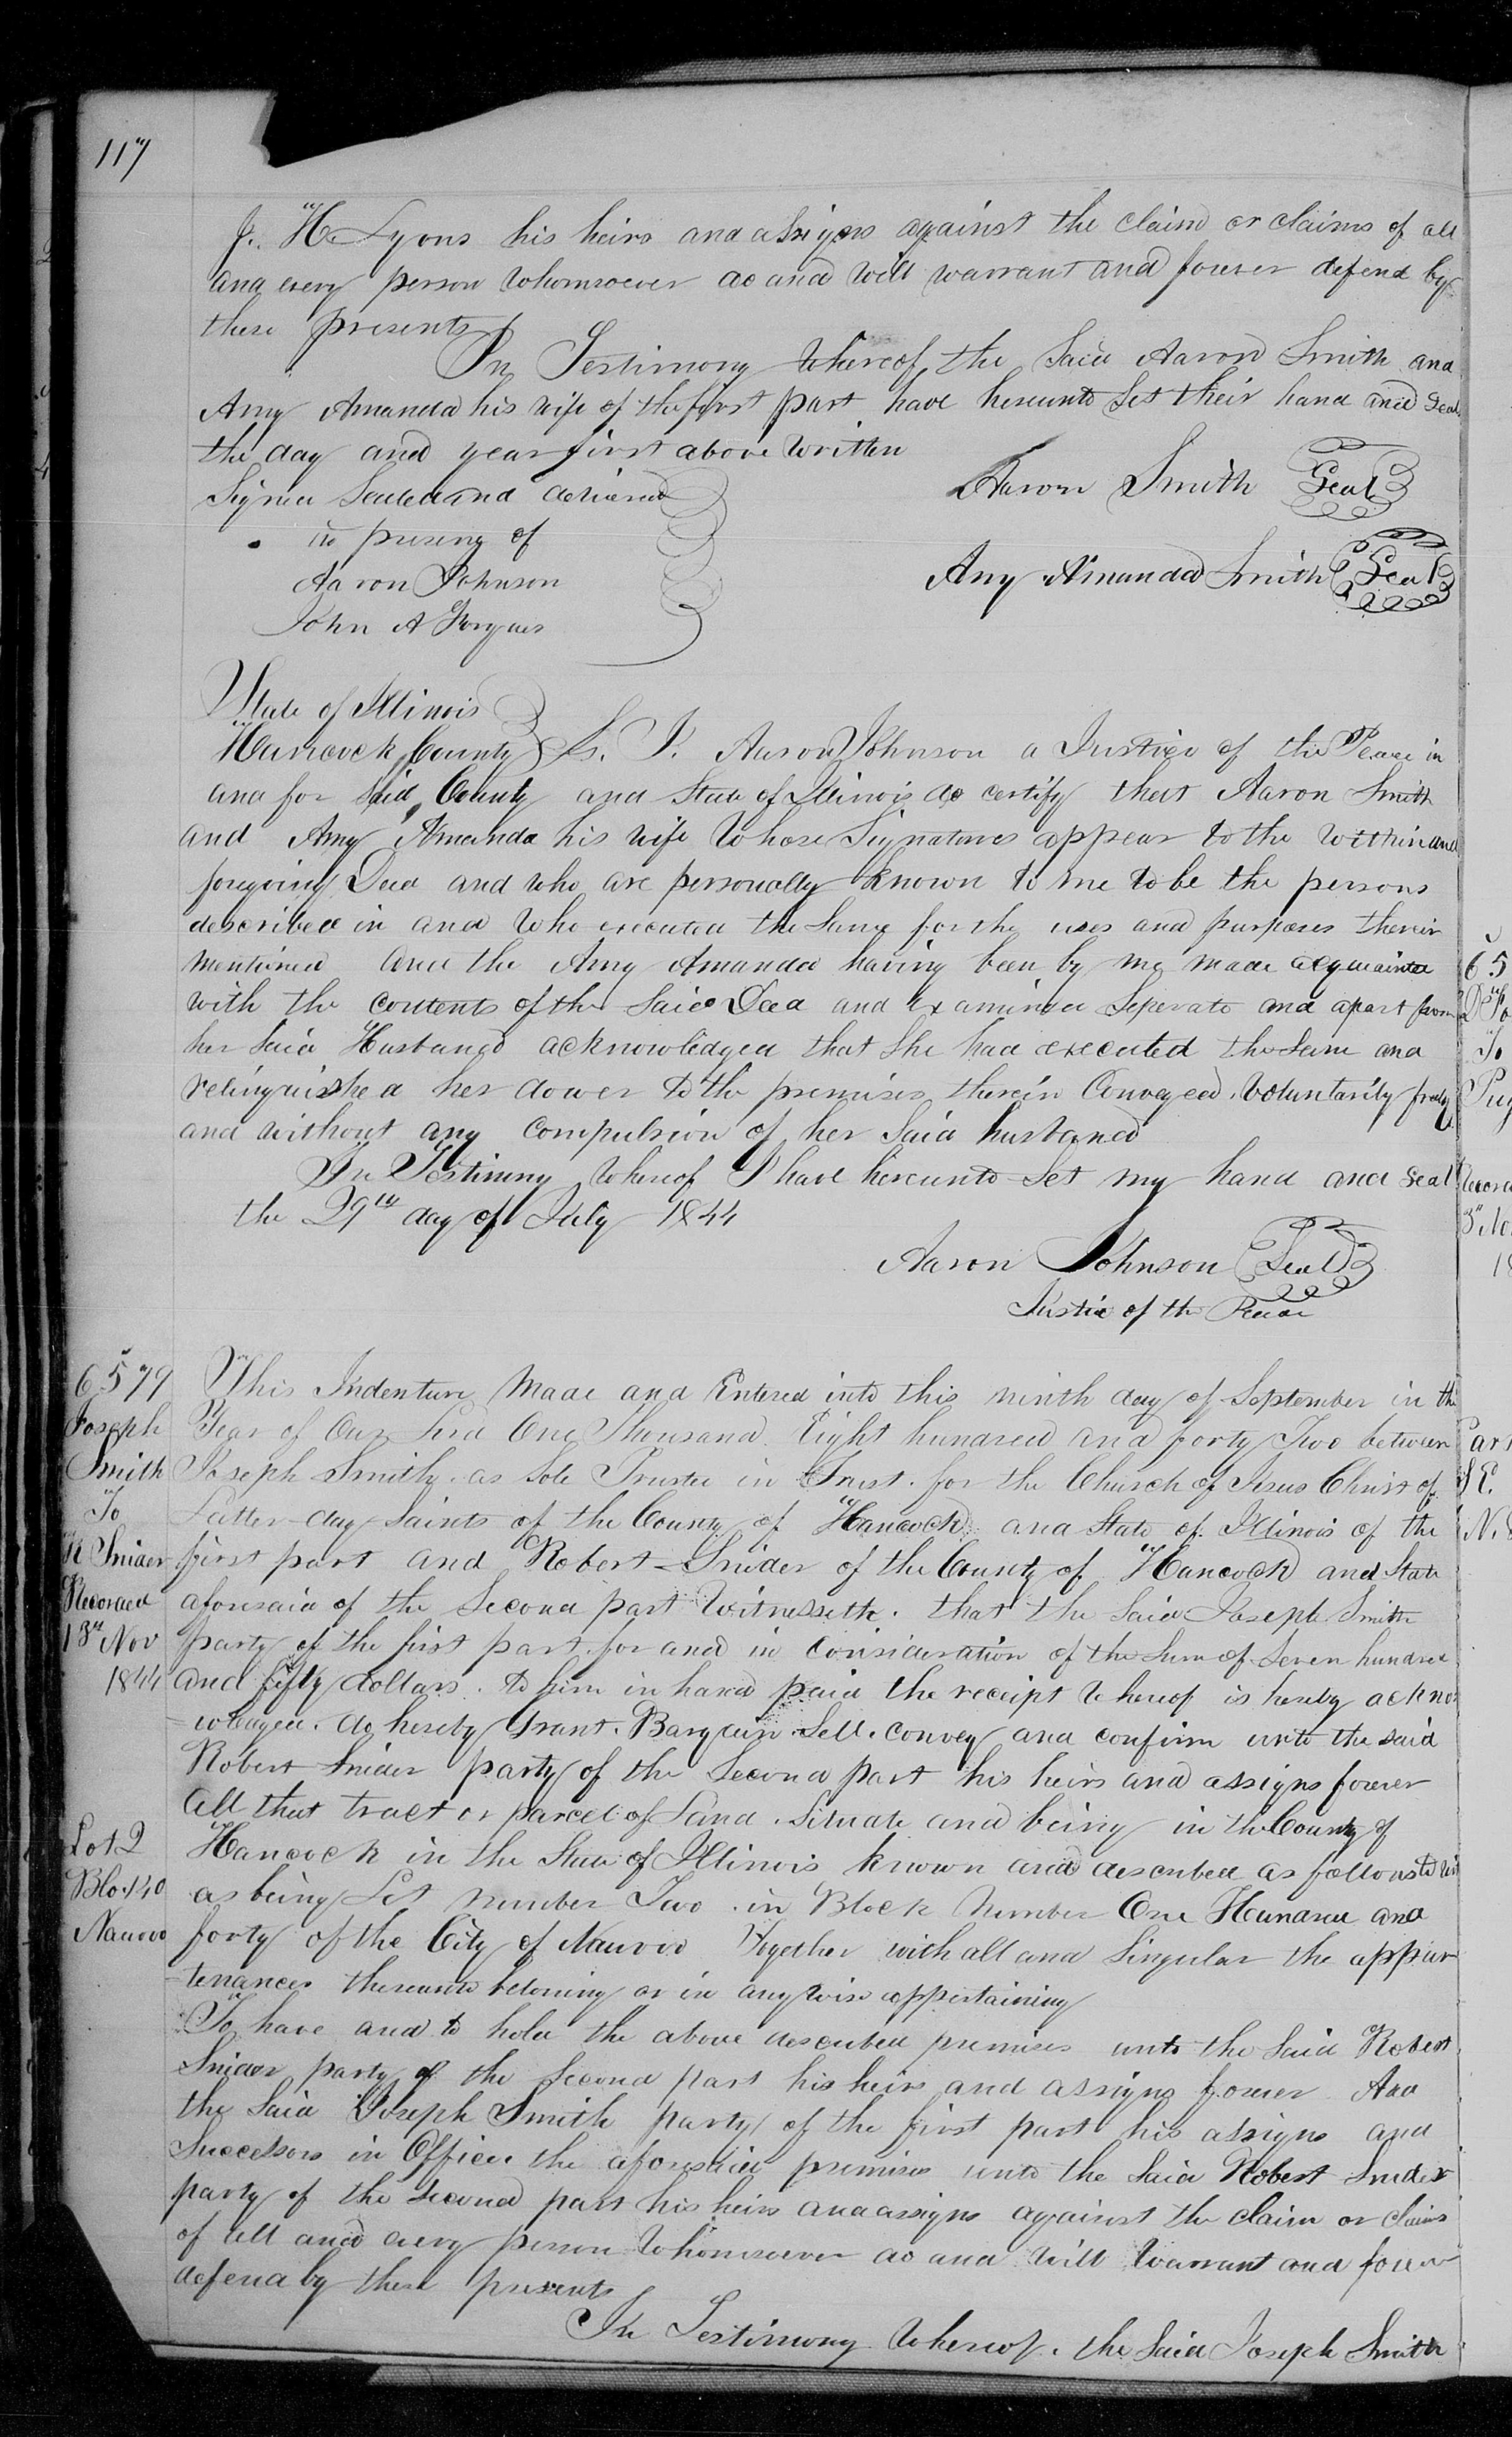 117
J. H. Lyons his heirs and assigns against the claim or claims of all
and every person whomsoever do and will warrant and forever defend by
these presents
In Testimony whereof the Said Aaron Smith and
Amy Amanda his wife of the first part have hereunto Set their hand and Seal
the day and year first above written
Signed Sealed and delivered
in preseny of
Aaron Johnson
John A
Aaron Smith Seal
Amy Amanda Smith Seal
State of Illinois
Hancock County Ss. I. Aaron Johnson a Justice of the Peace in
and for Said County and State of Illinois do certify that Aaron Smith
and Amy Amanda his wife whose Signatures appear to the within and
foregoing Deed and who are personally known to me to be the persons
described in and who executed the Same for the uses and purposes therein
mentioned and the Amy Amanda having been by me made acquainted
with the contents of the Said Deed and examined Seperate and apart from
her Said Husband acknowledged that She had executed the Same and
relinquished her dower to the premises therein Conveyed. Voluntarily freely
and without any compulsion of her Said husband
In Testimony whereof I have hereunto Set my hand and Seal
the 29th day of July 1844
Aaron Johnson Seal
Justice of the Peace
6579
Joseph
Smith
To
R Snider
Recorded
13th Nov
1844
This Indenture Made and Entered into this ninth day of September in the
Year of Our Lord One Thousand Eight hundred and forty Two between
Joseph Smith as Sole Trustee in Trust for the Church of Jesus Christ of
Latter-day Saints of the County of Hancock and State of Illinois of the
first part and Robert Snider of the County of Hancock and State
aforesaid of the Second part Witnesseth. that the Said Joseph Smith
party of the first part for and in Consideration of the Sum of Seven hundred
and fifty dollars. to him in hand paid the receipt whereof is hereby ackno
-wledged. do hereby Grant. Bargain. Sell. convey and confirm unto the said
Robert Snider party of the Second part his heirs and assigns forever
All that tract or parcel of Land. Situate and being in the County of
Lot 2
Blo. 140
Nauvoo
Hancock in the State of Illinois known and described as follows to wit
as being Lot number Two. in Block Number One Hundred and
forty of the City of Nauvoo Together with all and Singular the appur
-tenances thereunto beloning or in any wise appertaining
To have and to hold the above described premises unto the Said Robert
Snider party of the Second part his heirs and assigns forever And
the Said Joseph Smith party of the first part his assigns and
Successors in Office the aforesaid premises unto the Said Robert Snider
party of the Second part his heirs and assigns against the claim or claims
of all and every person whomsoever do and will Warrant and forever
defend by these presents
In Testimony whereof. the Said Joseph Smith